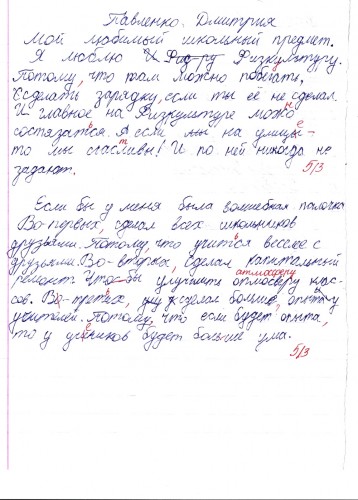 Павленко Дмитрия
Мой любимый школьный предмет.
Я люблю Физкультуру.
Потому, что там можно побегать,
Сделать зарядку, если ты её не сделал.
И главное на Физкультуре можно
состязатся. А если мы на улице -
то мы счастливы! И по ней никогда не
задают.
5/3
Если бы у меня была волшебная палочка
Во-первых, сделал всех школьников
друзьями. Потому, что учится веселее с
друзьями. Во-вторых, сделал капительный
атмосферу
ремонт. Что-бы улучшить отмосверу клас-
сов. В-третьих, сделал больше, опыта у
учителей. Потому, что если будет опыта,
то у учеников будет больше ума.
5/3